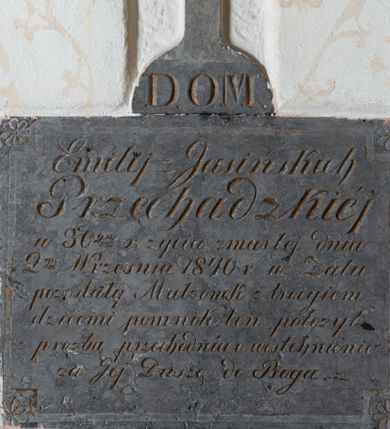 DOM
Emilij z Jasińskich
Przechadzkiéj
w 30 r. życia zmarłej dnia
2 Września 1840 r. w Żalu
pozostały Małżonek z troygiem
dziećmi pomnik ten położył
z prozbą przechodnia o westchnienie
za Jej Duszę do Boga.